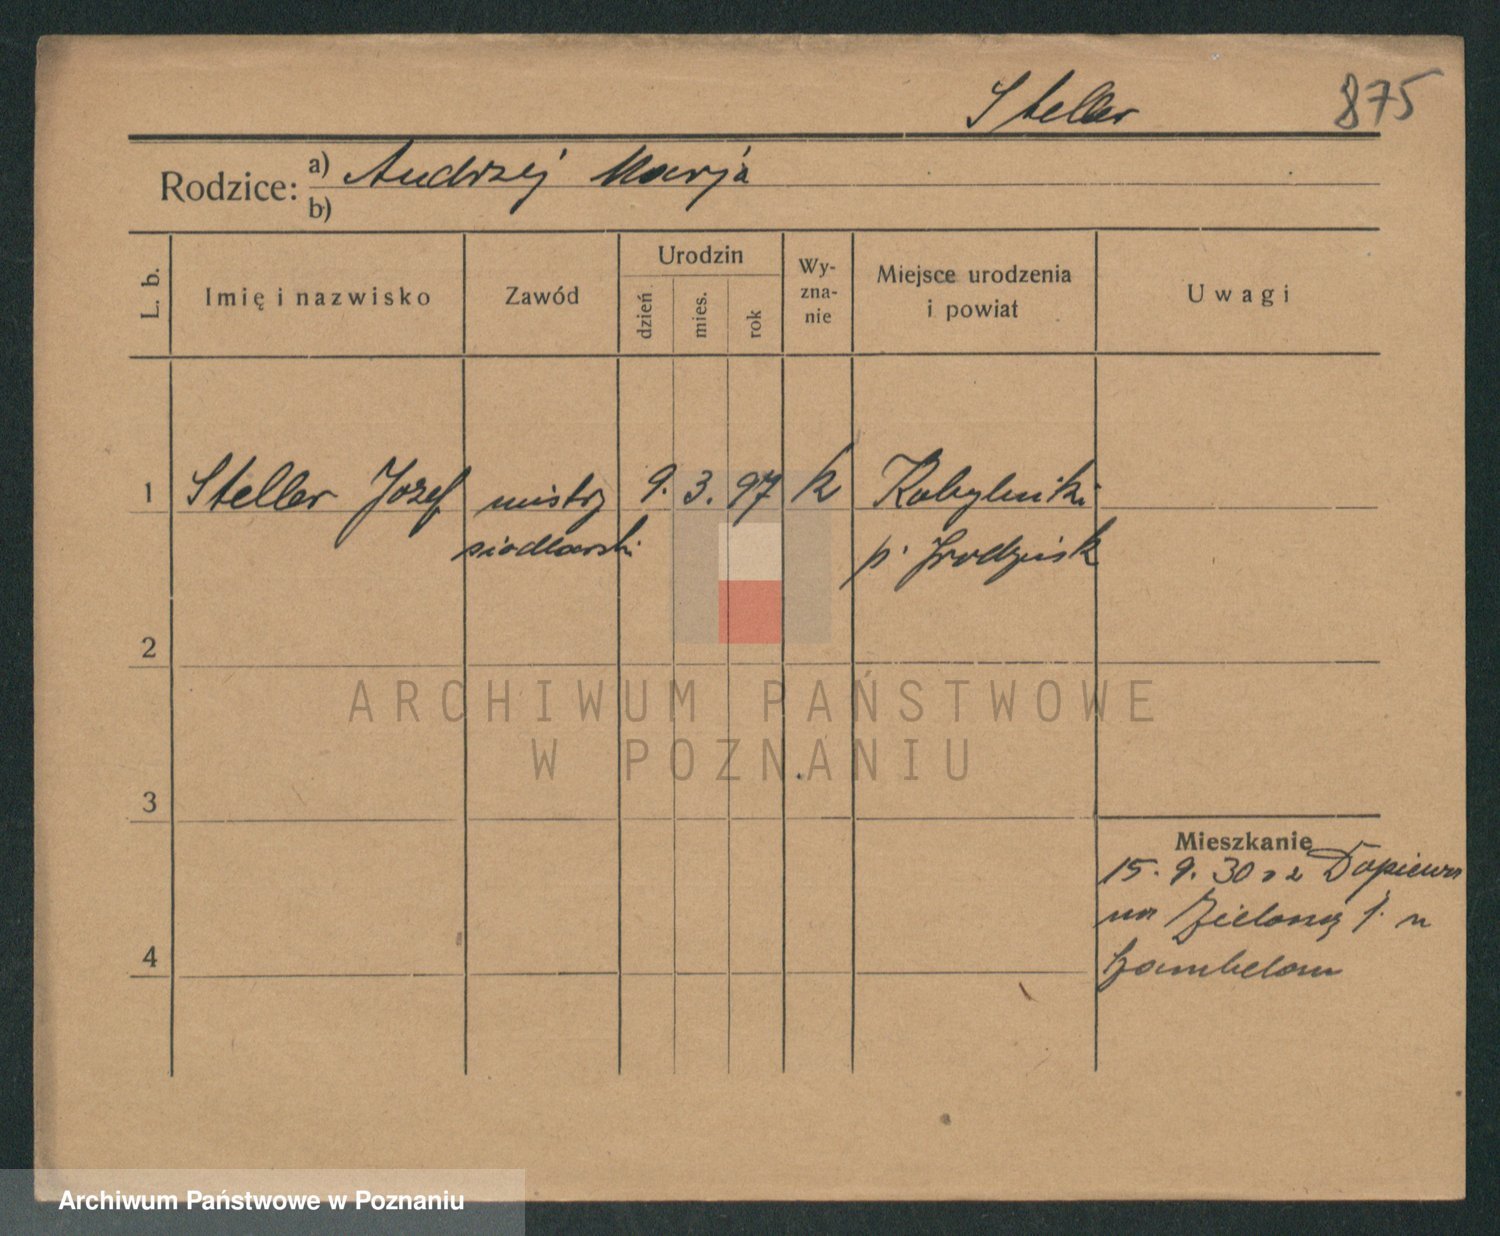 Steller 875
Rodzice: a) Andrzej Marja
b)
L. b. Imię i nazwisko Zawód Urodzin dzień mies. rok Wy-zna-nie Miejsce urodzenia i powiat Uwagi
1 Steller Józef mistrz 9. 3. 97 k Kobylniki
siodlarski p. Grodzisk
2
ARCHIWUM PAŃSTWOWE
W POZNANIU
3
Mieszkanie
15. 9. 30 z Dopiewa
na Zieloną 1.
4
Archiwum Państwowe w Poznaniu